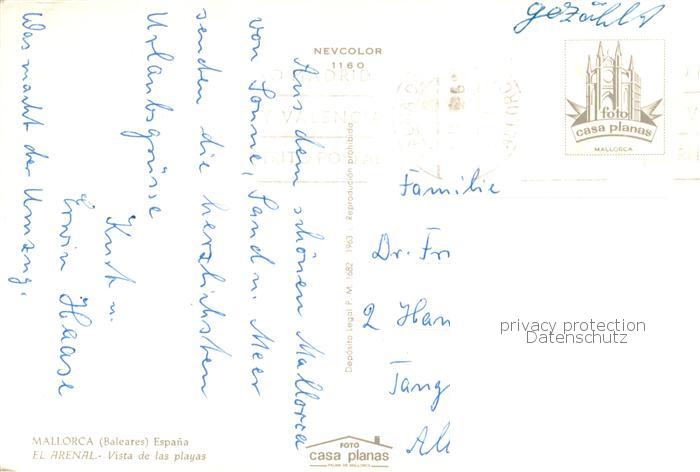 gezählt
NEVCOLOR
1160
foto
casa planas
MALLORCA
Aus dem schönen Mallorca
von Sonne, Sand u. Meer
senden die herzlichsten
Urlaubsgrüsse
Kurt u.
Erwin Haase
Was macht der Umzug.
Depósito Legal P. M. 1682 - 1963 - Reproducción prohibida
Familie
Dr. Fri
2 Han
Tang
privacy protection
Datenschutz
MALLORCA (Baleares) España
EL ARENAL.- Vista de las playas
FOTO
casa planas
PALMA DE MALLORCA